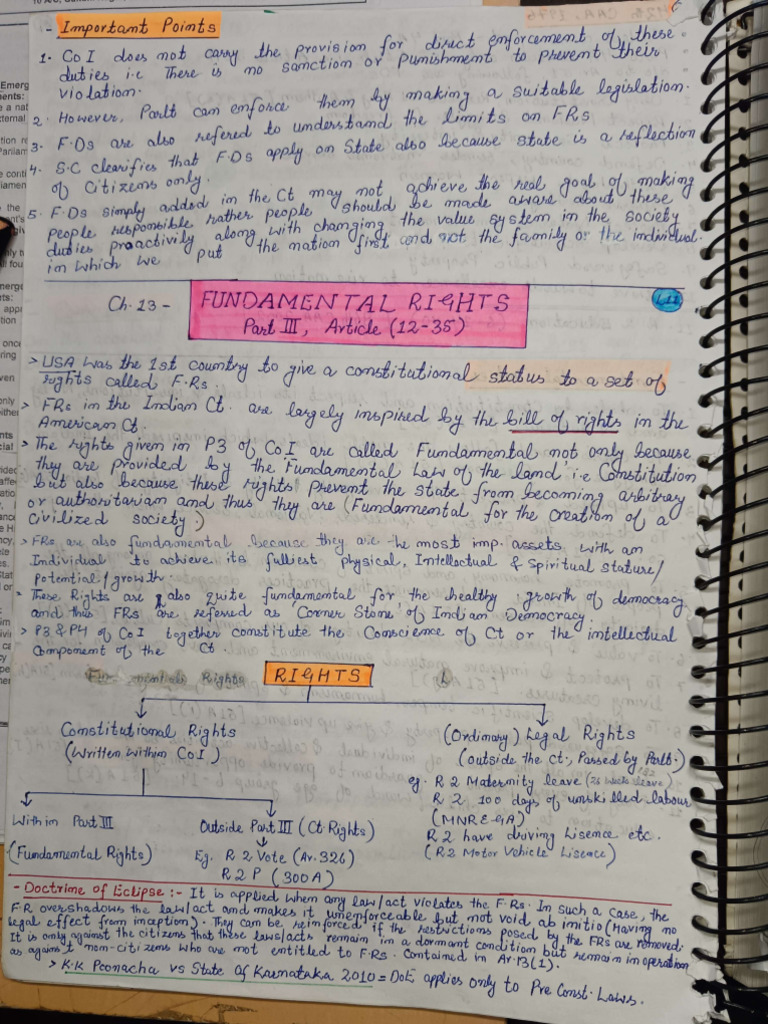 - Important Points
1. CoI does not carry the provision for direct enforcement of these
duties i.e There is no sanction or punishment to prevent their
violation.
2. However, Parlt can enforce them by making a suitable legislation.
3. F.Ds are also refered to understand the limits on FRs
4. S.C clearifies that F.Ds apply on State also because state is a reflection
of Citizens only.
5. F.Ds simply added in the Ct may not achieve the real goal of making
people responsible rather people should be made aware about these
duties proactivily along with changing the value system in the society
in which we put the nation first and not the family or the individual.
Ch. 13 - FUNDAMENTAL RIGHTS
Part III, Article (12-35)
L11
> USA was the 1st country to give a constitutional status to a set of
rights called F.Rs
> FRs in the Indian Ct. are largely inspired by the bill of rights in the
American Ct.
> The rights given in P3 of CoI are called Fundamental not only because
they are provided by the 'Fundamental Law of the land' i.e Constitution
but also because these rights prevent the state from becoming arbitrary
or authoritarian and thus they are (Fundamental for the creation of a
civilized society)
> FRs are also fundamental because they are the most imp. assets with an
Individual to achieve its fulliest physical, Intellectual & Spiritual stature/
potential/growth.
• These Rights are also quite fundamental for the healthy growth of democracy
and thus FRs are referred as 'Corner Stone' of Indian Democracy
> P3 & P4 of CoI together constitute the Conscience of Ct or the intellectual
Component of the Ct
RIGHTS
Constitutional Rights
(Written within CoI)
(Ordinary) Legal Rights
(outside the ct, Passed by Parlt.)
eg. R 2 Maternity leave (26 weeks leave)
R 2 100 days of unskilled labour
(MNREGA)
R 2 have driving Lisence etc.
(R 2 Motor Vehicle Lisence)
Within Part III
(Fundamental Rights)
Outside Part III (Ct. Rights)
Eg. R 2 Vote (Ar. 326)
R 2 P (300A)
- Doctrime of Eclipse :- It is applied when any law/act violates the F.Rs. In such a case, the
F.R overshadows the law/act and makes it unenforceable but not void ab imitio (Having no
legal effect from inception). They can be reinforced if the restrictions posed by the FRs are removed.
It is only against the citizens that these laws/acts remain in a dormant condition but remain in operation
as against non-citizens who are not entitled to F.Rs. Contained in Ar.13(1).
> K.K Poonacha vs State of Karnataka 2010 = DoE applies only to Pre Const. Laws.